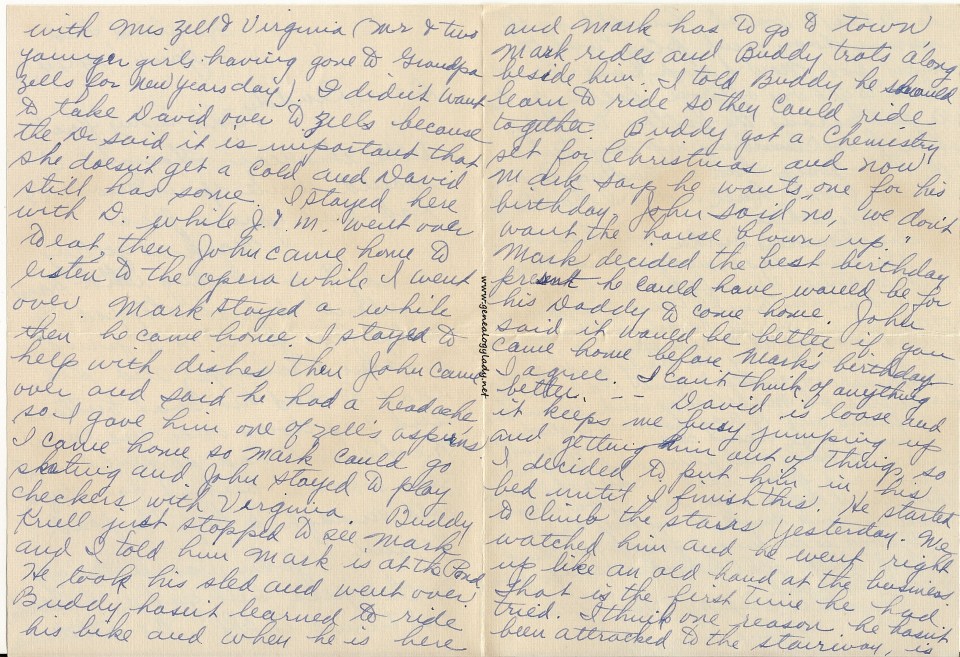 with Mrs Zell & Virginia (Mr & two
younger girls having gone to Grandpa
Zells for New Years day). I didn't want
to take David over to Zells because
the Dr said it is important that
she doesn't get a cold and David
still has some. I stayed here
with D. while J. & M. went over
to eat, then John came home to
listen to the opera while I went
over. Mark stayed a while
then he came home. I stayed to
help with dishes then John came
over and said he had a headache
so I gave him one of Zell's aspirins.
I came home so Mark could go
skating and John stayed to play
checkers with Virginia. Buddy
Krull just stopped to see Mark
and I told him Mark is at the Pond.
He took his sled and went over.
Buddy hasn't learned to ride
his bike and when he is here
and Mark has to go to town,
Mark rides and Buddy trots along
beside him. I told Buddy he should
learn to ride so they could ride
together. Buddy got a Chemistry
set for Christmas and now
Mark says he wants one for his
birthday. John said "no, we don't
want the house blown up."
Mark decided the best birthday
present he could have would be for
his Daddy to come home. John
said it would be better if you
came home before Mark's birthday.
I agree. I can't think of anything
better. -- David is loose and
it keeps me busy jumping up
and getting him out of things, so
I decided to put him in his
bed until I finish this. He started
to climb the stairs yesterday. We
watched him and he went right
up like an old hand at the business.
That is the first time he had
tried. I think one reason he hasn't
been attracted to the stairway, is
www.genealogylady.net